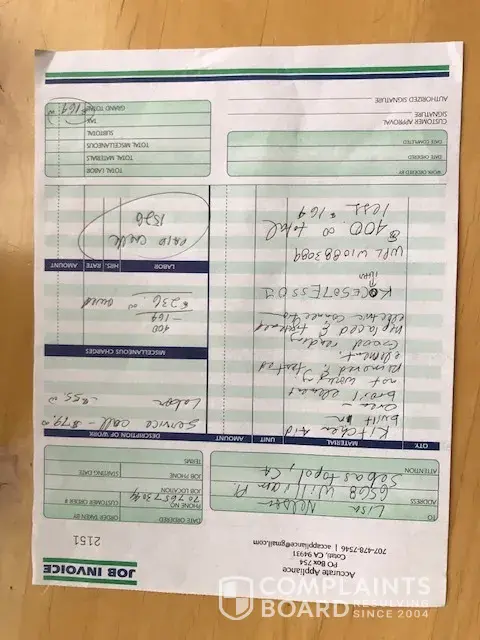 JOB INVOICE
2151
Accurate Appliance
PO Box 754
Cotati, CA 94931
707-478-7546 | accappliance@gmail.com
TO
Lisa Nelson
ADDRESS
6568 William Pl.
Sebastopol, CA
ATTENTION
DATE ORDERED
ORDER TAKEN BY
PHONE NO.
CUSTOMER ORDER #
JOB LOCATION
JOB PHONE
STARTING DATE
TERMS
QTY.
MATERIAL
UNIT
AMOUNT
DESCRIPTION OF WORK
Kitchen Aid
built in
oven
broil element
not working
removed & tested
element.
Good reading
replaced & tightened
electric connector
KOCE507ESS01
WPL W10883089
$400.00 total
less $169
Service call - $79.00
Labor
MISCELLANEOUS CHARGES
400
-169
$236.00 owed
LABOR
HRS.
RATE
AMOUNT
PAID CHECK
1526
WORK ORDERED BY
DATE ORDERED
DATE COMPLETED
CUSTOMER APPROVAL
SIGNATURE
AUTHORIZED SIGNATURE
TOTAL LABOR
TOTAL MATERIALS
TOTAL MISCELLANEOUS
SUBTOTAL
TAX
GRAND TOTAL
COMPLAINTS
BOARD
RESOLVING
SINCE 2004